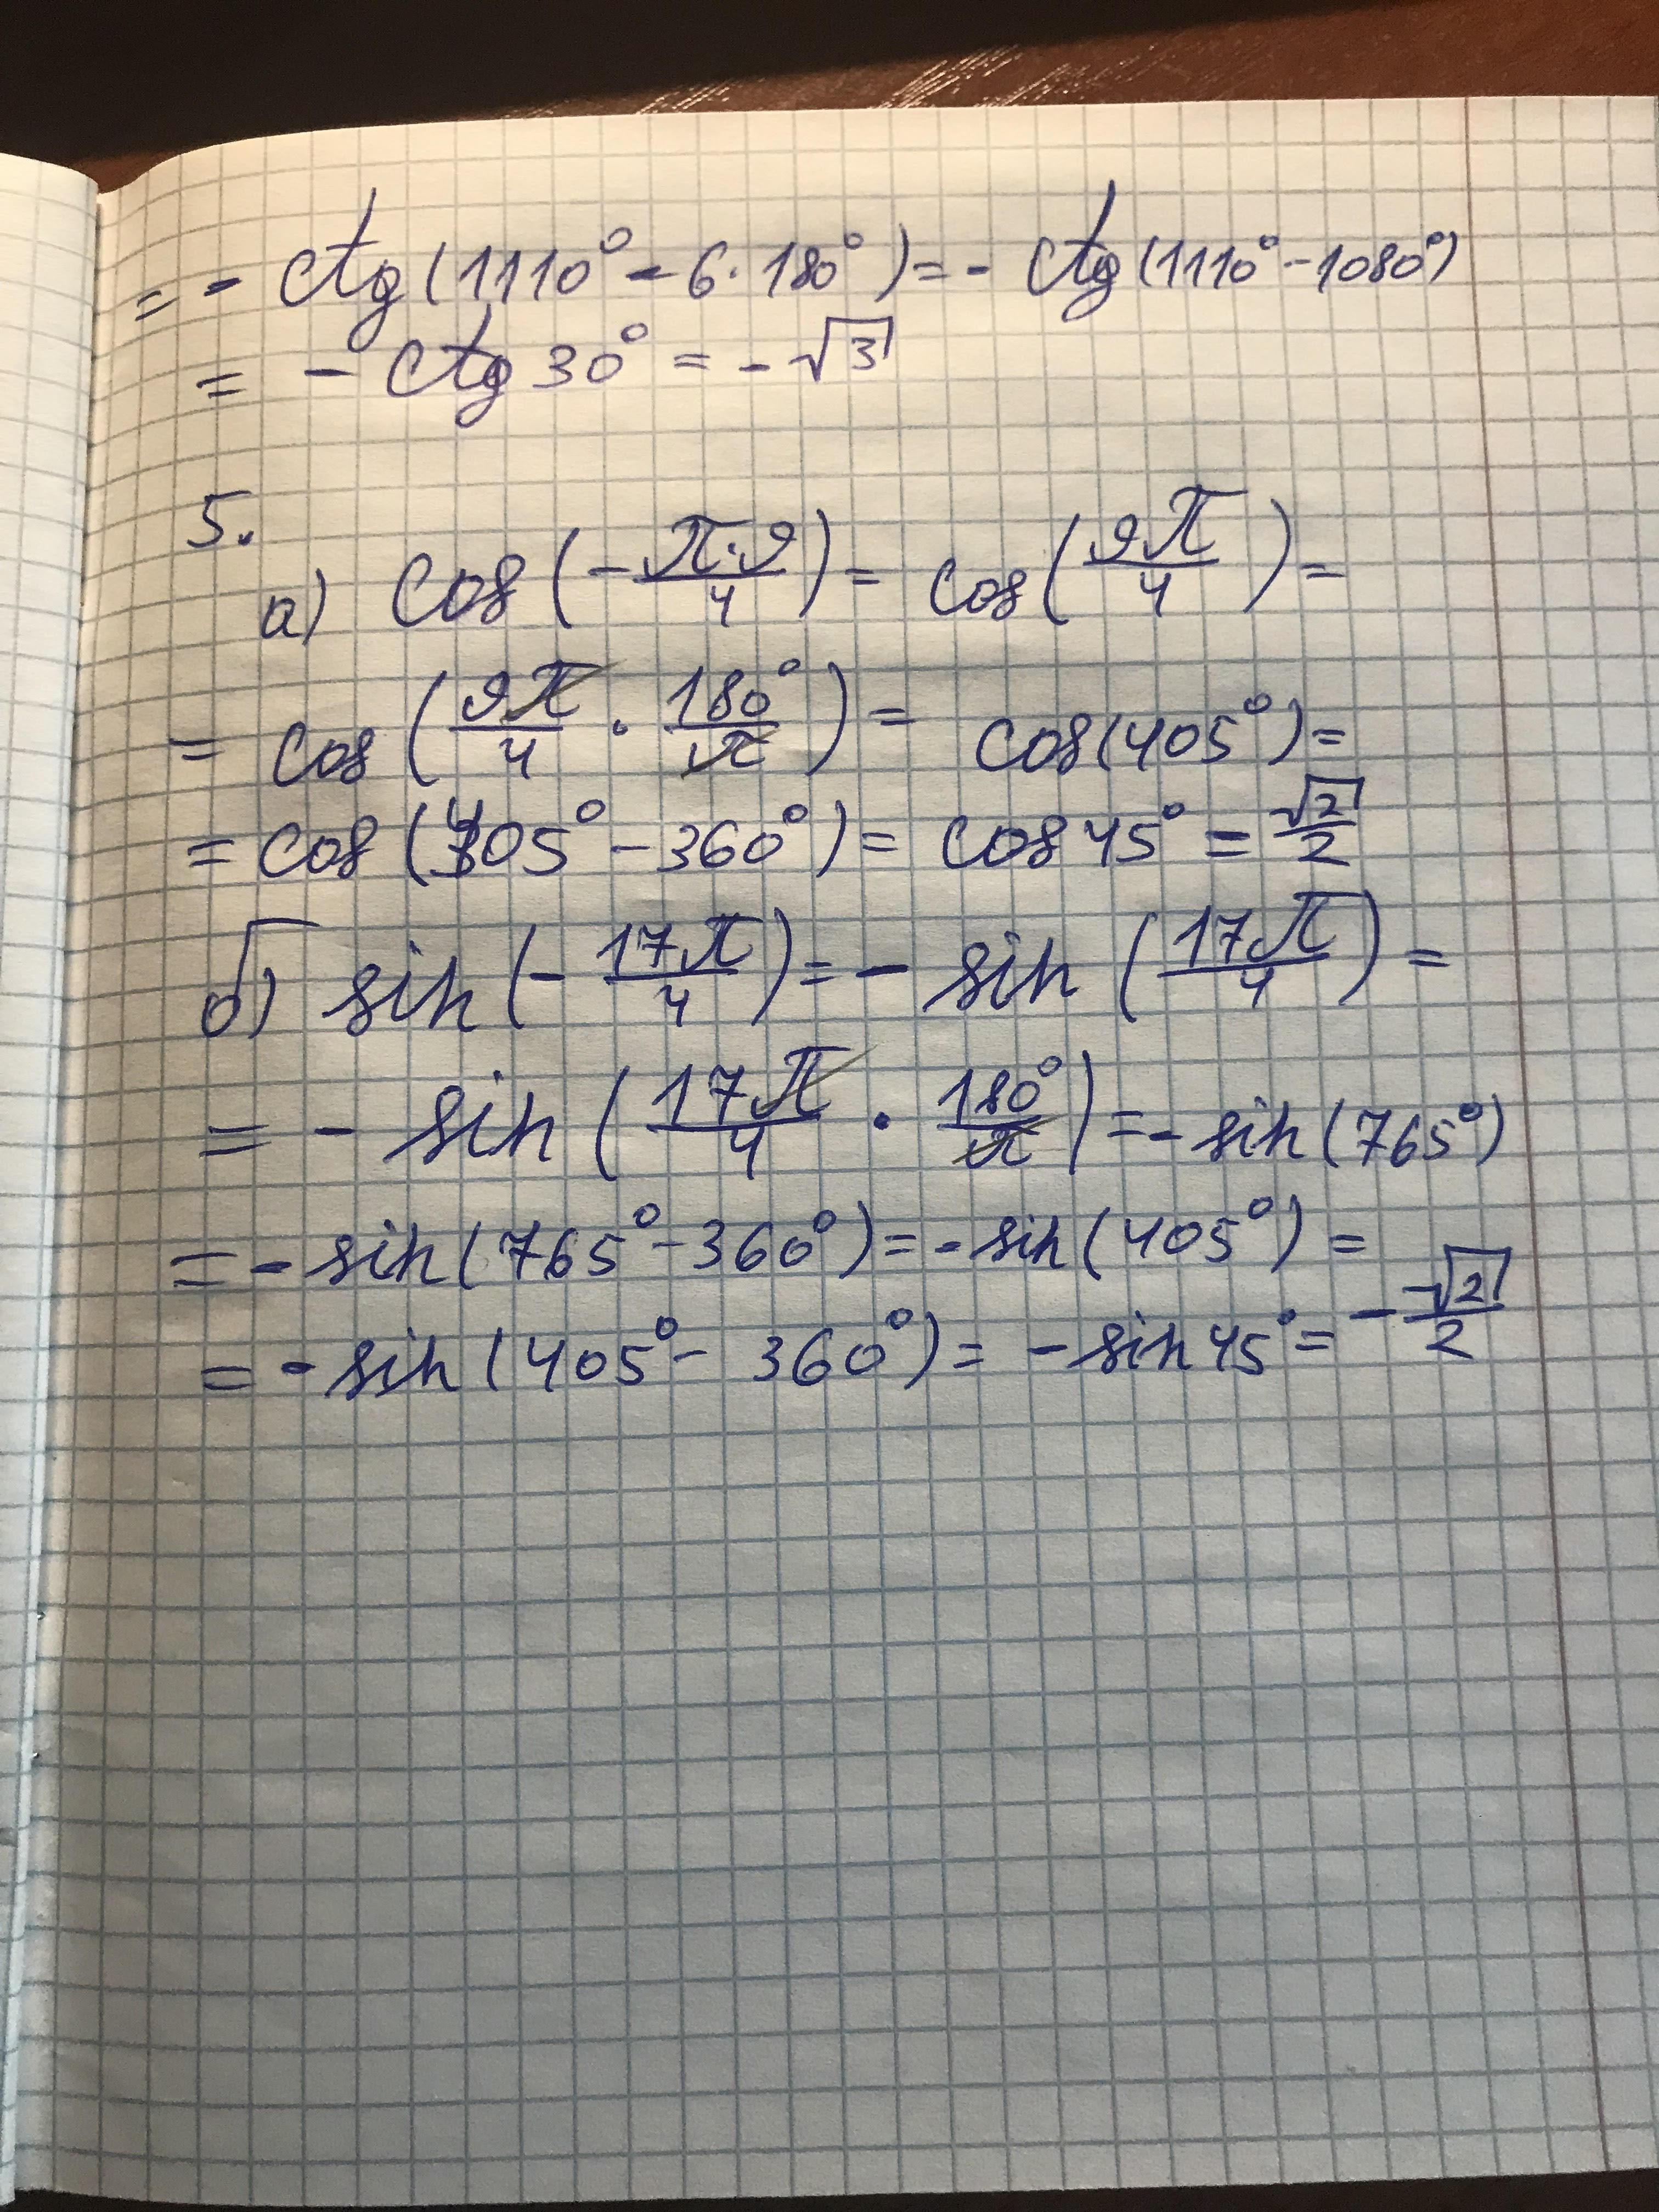 = - ctg (1110° - 6 · 180°) = - ctg (1110° - 1080°)
= - ctg 30° = - √3
5.
а) cos (- π·9/4) = cos (9π/4) =
= cos (9π/4 · 180°/π) = cos (405°) =
= cos (405° - 360°) = cos 45° = √2/2
б) sin (- 17π/4) = - sin (17π/4) =
= - sin (17π/4 · 180°/π) = - sin (765°)
= - sin (765° - 360°) = - sin (405°) =
= - sin (405° - 360°) = - sin 45° = - √2/2